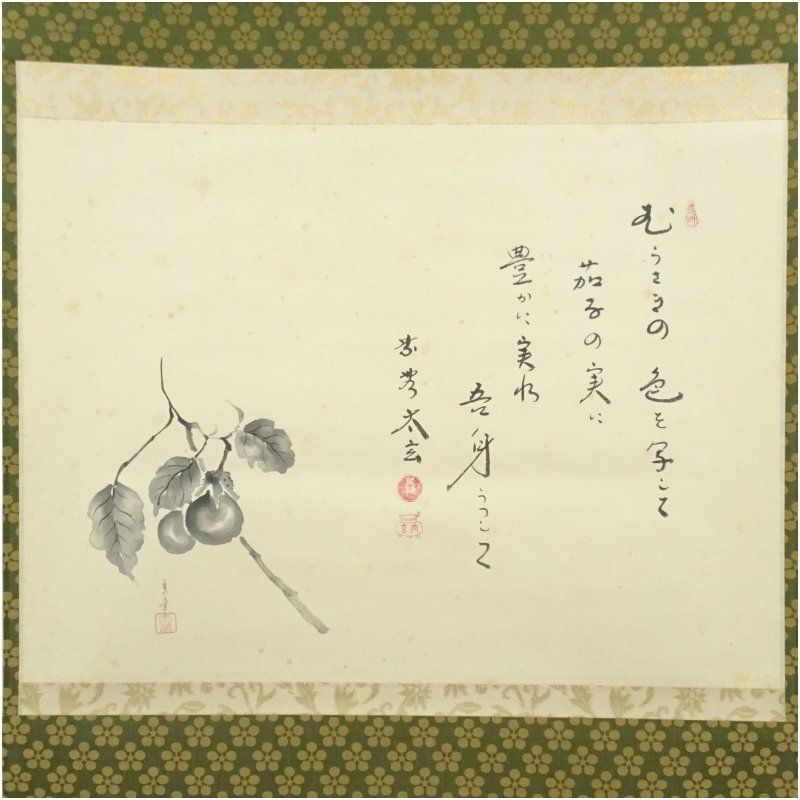 むらさきの 色を写して
茄子の実に
豊かに実れ
吾身うつして
紫野 太玄